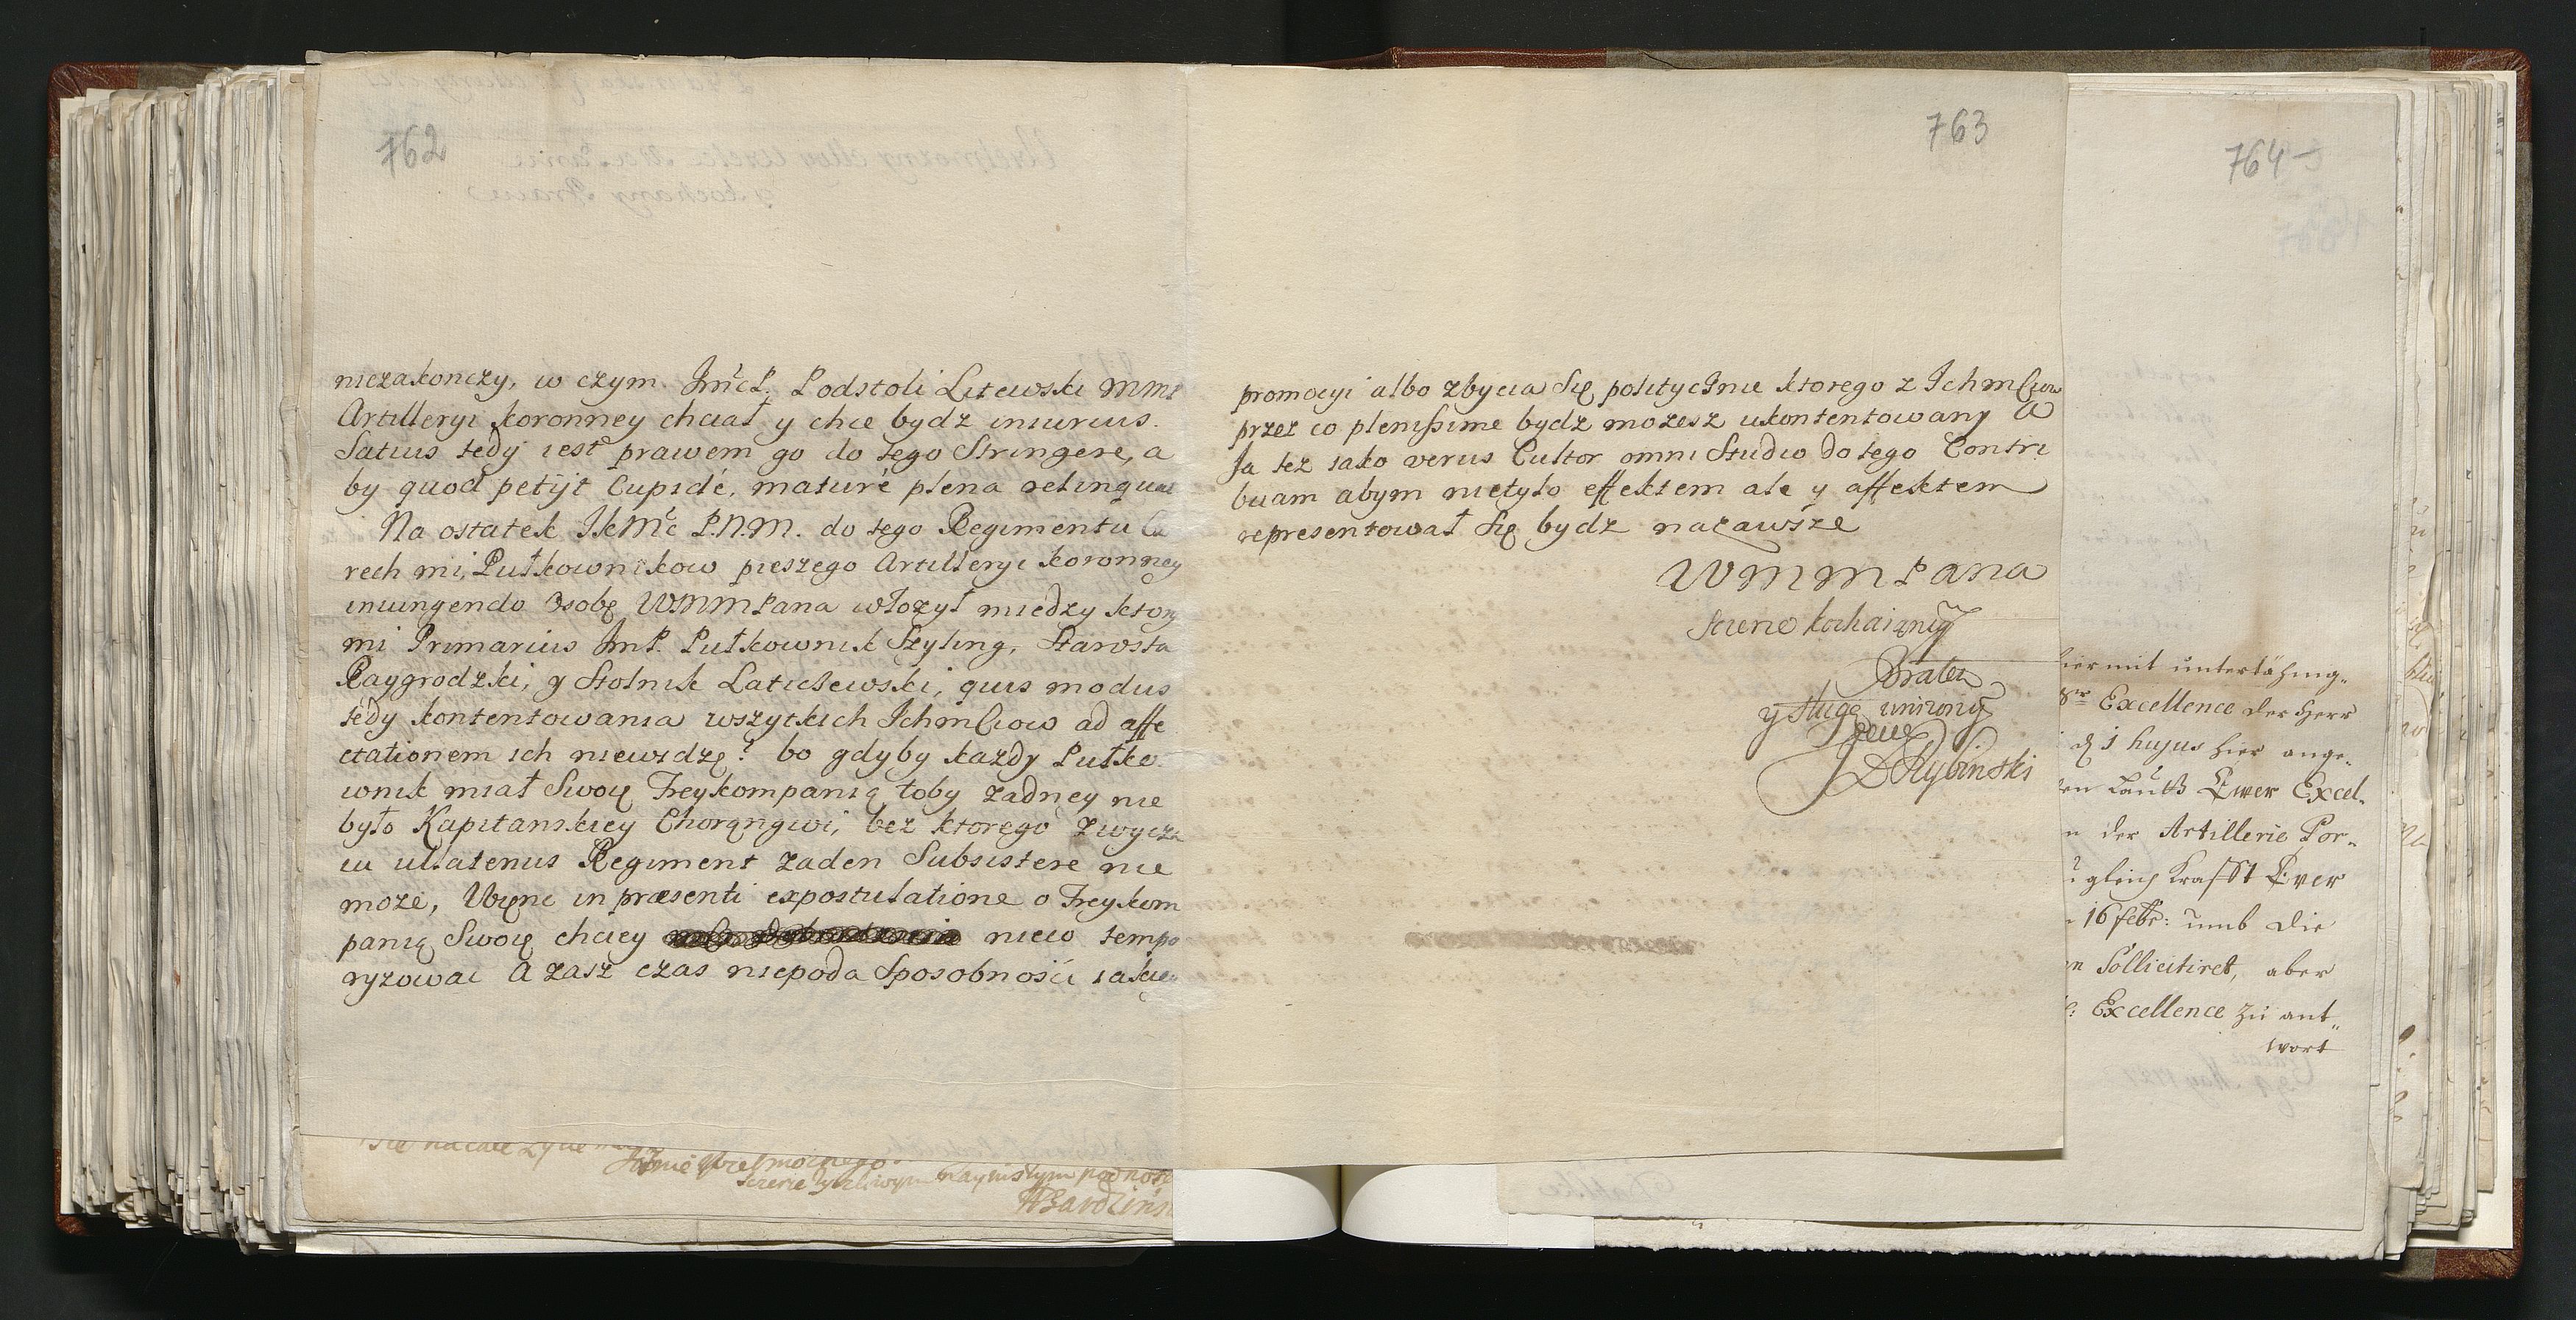 762
niezakonczy, w czym. JmćP. Podstoli Litewski
Artilleryi koronney chciał y chce bydz iniurius.
Satius tedy iest prawem go do tego Stringere, a
by quod petijt Cupidé, maturé plena relinquat
Na ostatek JkMć P.N.M. do tego Regimentu
rech mi, Pułkownikow pieszego Artilleryi koronney
iniungendo Osobę WMMPana włozył miedzy ktory
mi Primarius JmP. Pułkownik Szyling, Starosta
Raygrodzki, y Stolnik Latické̇wski, quis modus
tedy kontentowania wszytkich Ichmściow ad affe
ctationem ich niewidzę? bo gdyby kazdy Pułko
wnik miał Swoię Freykompanią toby zadney nie
było Kapitanskiey Chorągwi, bez ktorego zwycza
iu ullatenus Regiment zaden Subsistere nie
moze, in præsenti expostulatione o Freykom
panią Swoię chciey nieco tempo
ryzowac A zasz czas niepoda Sposobnosci iakiey
763
promocyi albo zbycia Się politycznie ktorego z Ichmściow
przez co plenissime bydz mozesz ukontentowany a
Ja tez iako verus Cultor omni Studio do tego Contri
buam abym nietylo effektem ale y affektem
representował Się bydz nazawsze
WMMPana
szcerie kochaiącym
Bratem
y sługą unizonym
JDRybinski
764
hiermit unterthänig„
Excellence der Herr
1 hujus hier ange„
Ewer Excel„
der Artillerie Por„
gleich Krafft Ewer
16 febr: umb die
Sollicitiret, aber
Excellence zu ant„
wort